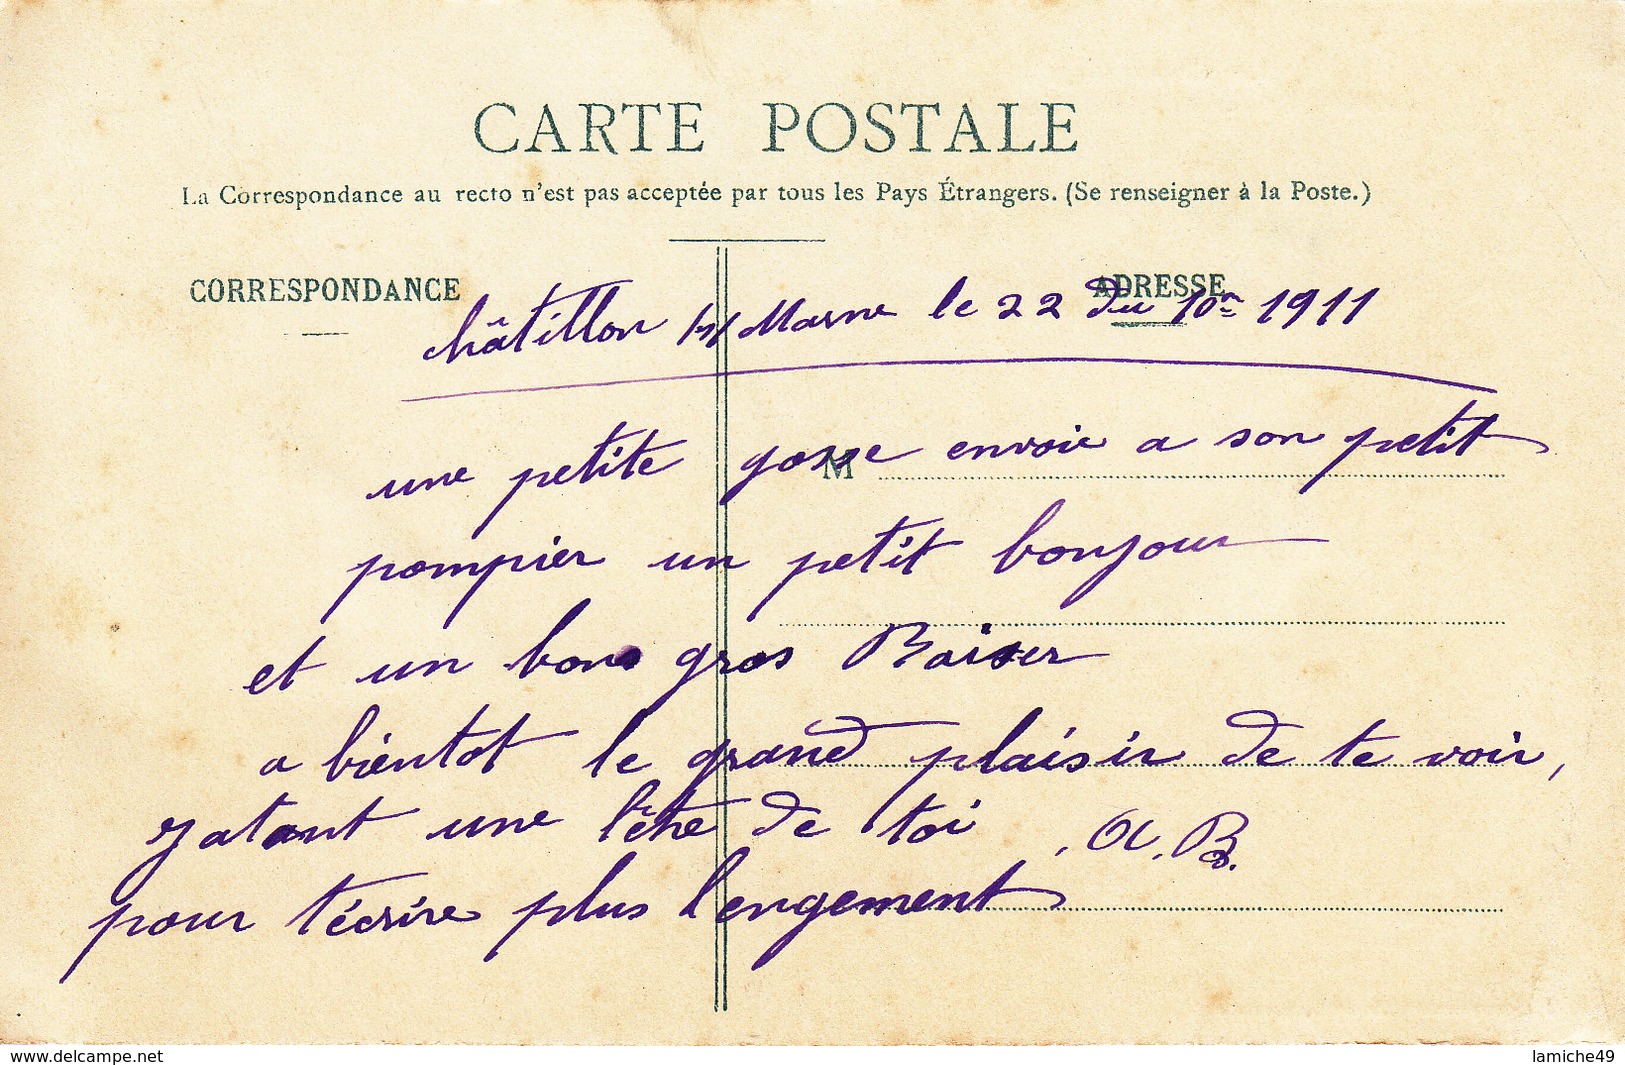 CARTE POSTALE
La Correspondance au recto n'est pas acceptée par tous les Pays Étrangers. (Se renseigner à la Poste.)
CORRESPONDANCE
ADRESSE
Châtillon s/ Marne le 22 du 10re 1911
M
une petite gosse envoie a son petit
pompier un petit bonjour
et un bons gros Baiser
a bientot le grand plaisir de te voir,
jatant une lêtre de toi
. A. B.
pour t'écrire plus l'engement
www.delcampe.net
lamiche49